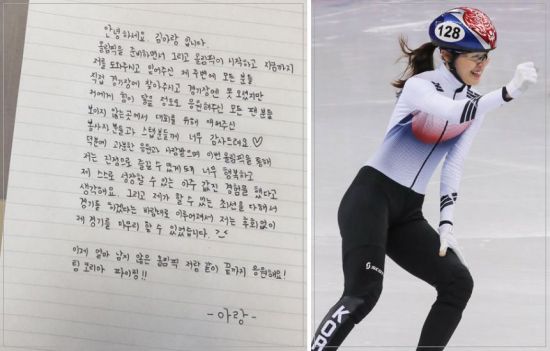 안녕하세요 김아랑 입니다.
올림픽을 준비하면서 그리고 올림픽이 시작하고 지금까지
저를 도와주시고 믿어주신 제 주변에 모든 분들
직접 경기장에 찾아주시고 경기장엔 못 오셨지만
저에게 힘이 닿을 정도로 응원해주신 모든 팬 분들
보이지 않는곳에서 대회를 위해 애써주신
봉사자분들과 스텝분들께 너무 감사드려요♡
덕분에 과분한 응원과 사랑받으며 이번 올림픽을 통해
저는 진정으로 즐길 수 있게 되어 너무 행복하고
제 스스로 성장할 수 있는 아주 값진 경험을 했다고
생각해요. 그리고 제가 할 수 있는 최선을 다해서
경기를 하겠다는 바람대로 이루어져서 저는 후회없이
제 경기를 마무리 할 수 있었습니다.
이제 얼마 남지 않은 올림픽 저랑 같이 끝까지 응원해요!
팀 코리아 파이팅!!
-아랑-
128
SCOTT
KOR